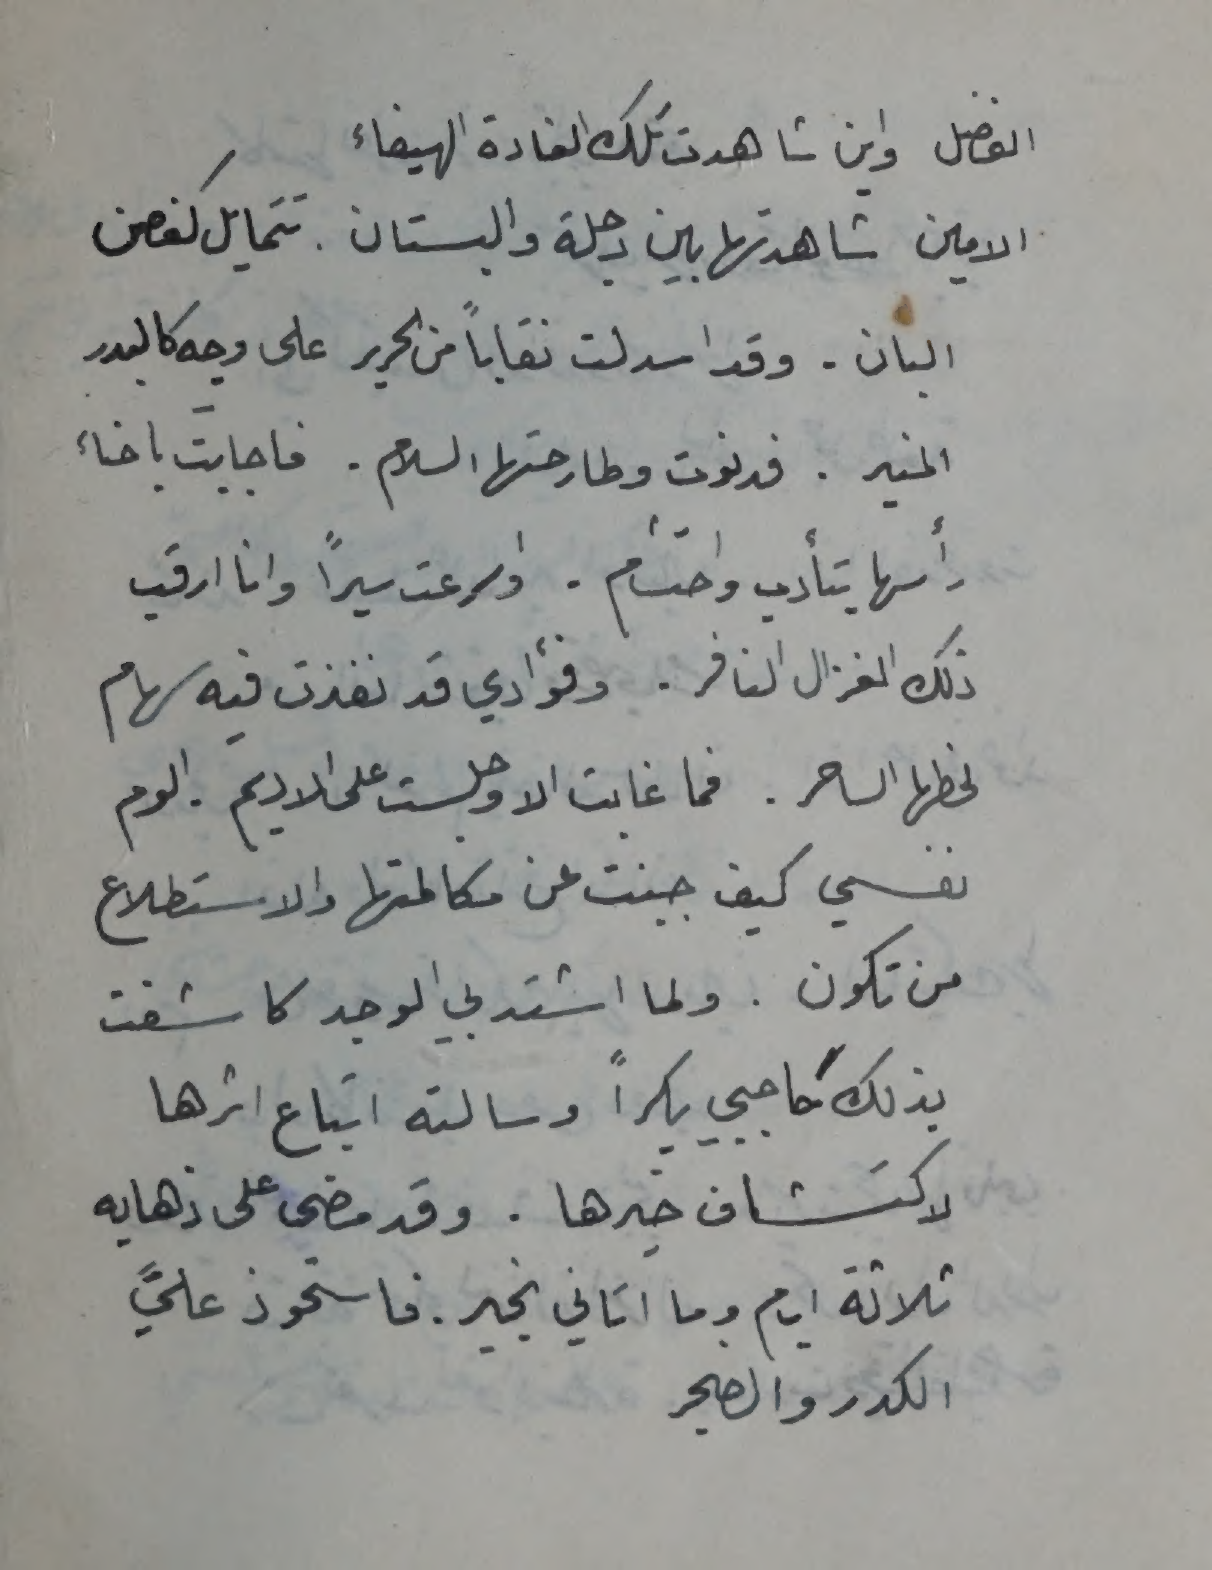 الفضل وأين شاهدت تلك الغادة الهيفاء
الامين شاهدتها بين دجلة والبستان . تتمايل كغصن
البان . وقد اسدلت نقاباً من الحرير على وجه كالبدر
المنير . فدنوت وطارحتها السلام . فاجابت باحناء
رأسها بتأدب واحتشام . واسرعت سيراً وانا ارقب
ذلك الغزال النافر . وفؤادي قد نفذت فيه سهام
لحظها الساحر . فما غابت الا وجلست على الاديم . الوم
نفسي كيف جبنت عن مكالمتها والاستطلاع
من تكون . ولما اشتد بي الوجد كاشفت
بذلك حاجبي بكراً وسالته اتباع اثرها
لاكتشاف خبرها . وقد مضى على ذهابه
ثلاثة ايام وما اتاني بخبر . فاستحوذ عليَّ
الكدر والضجر